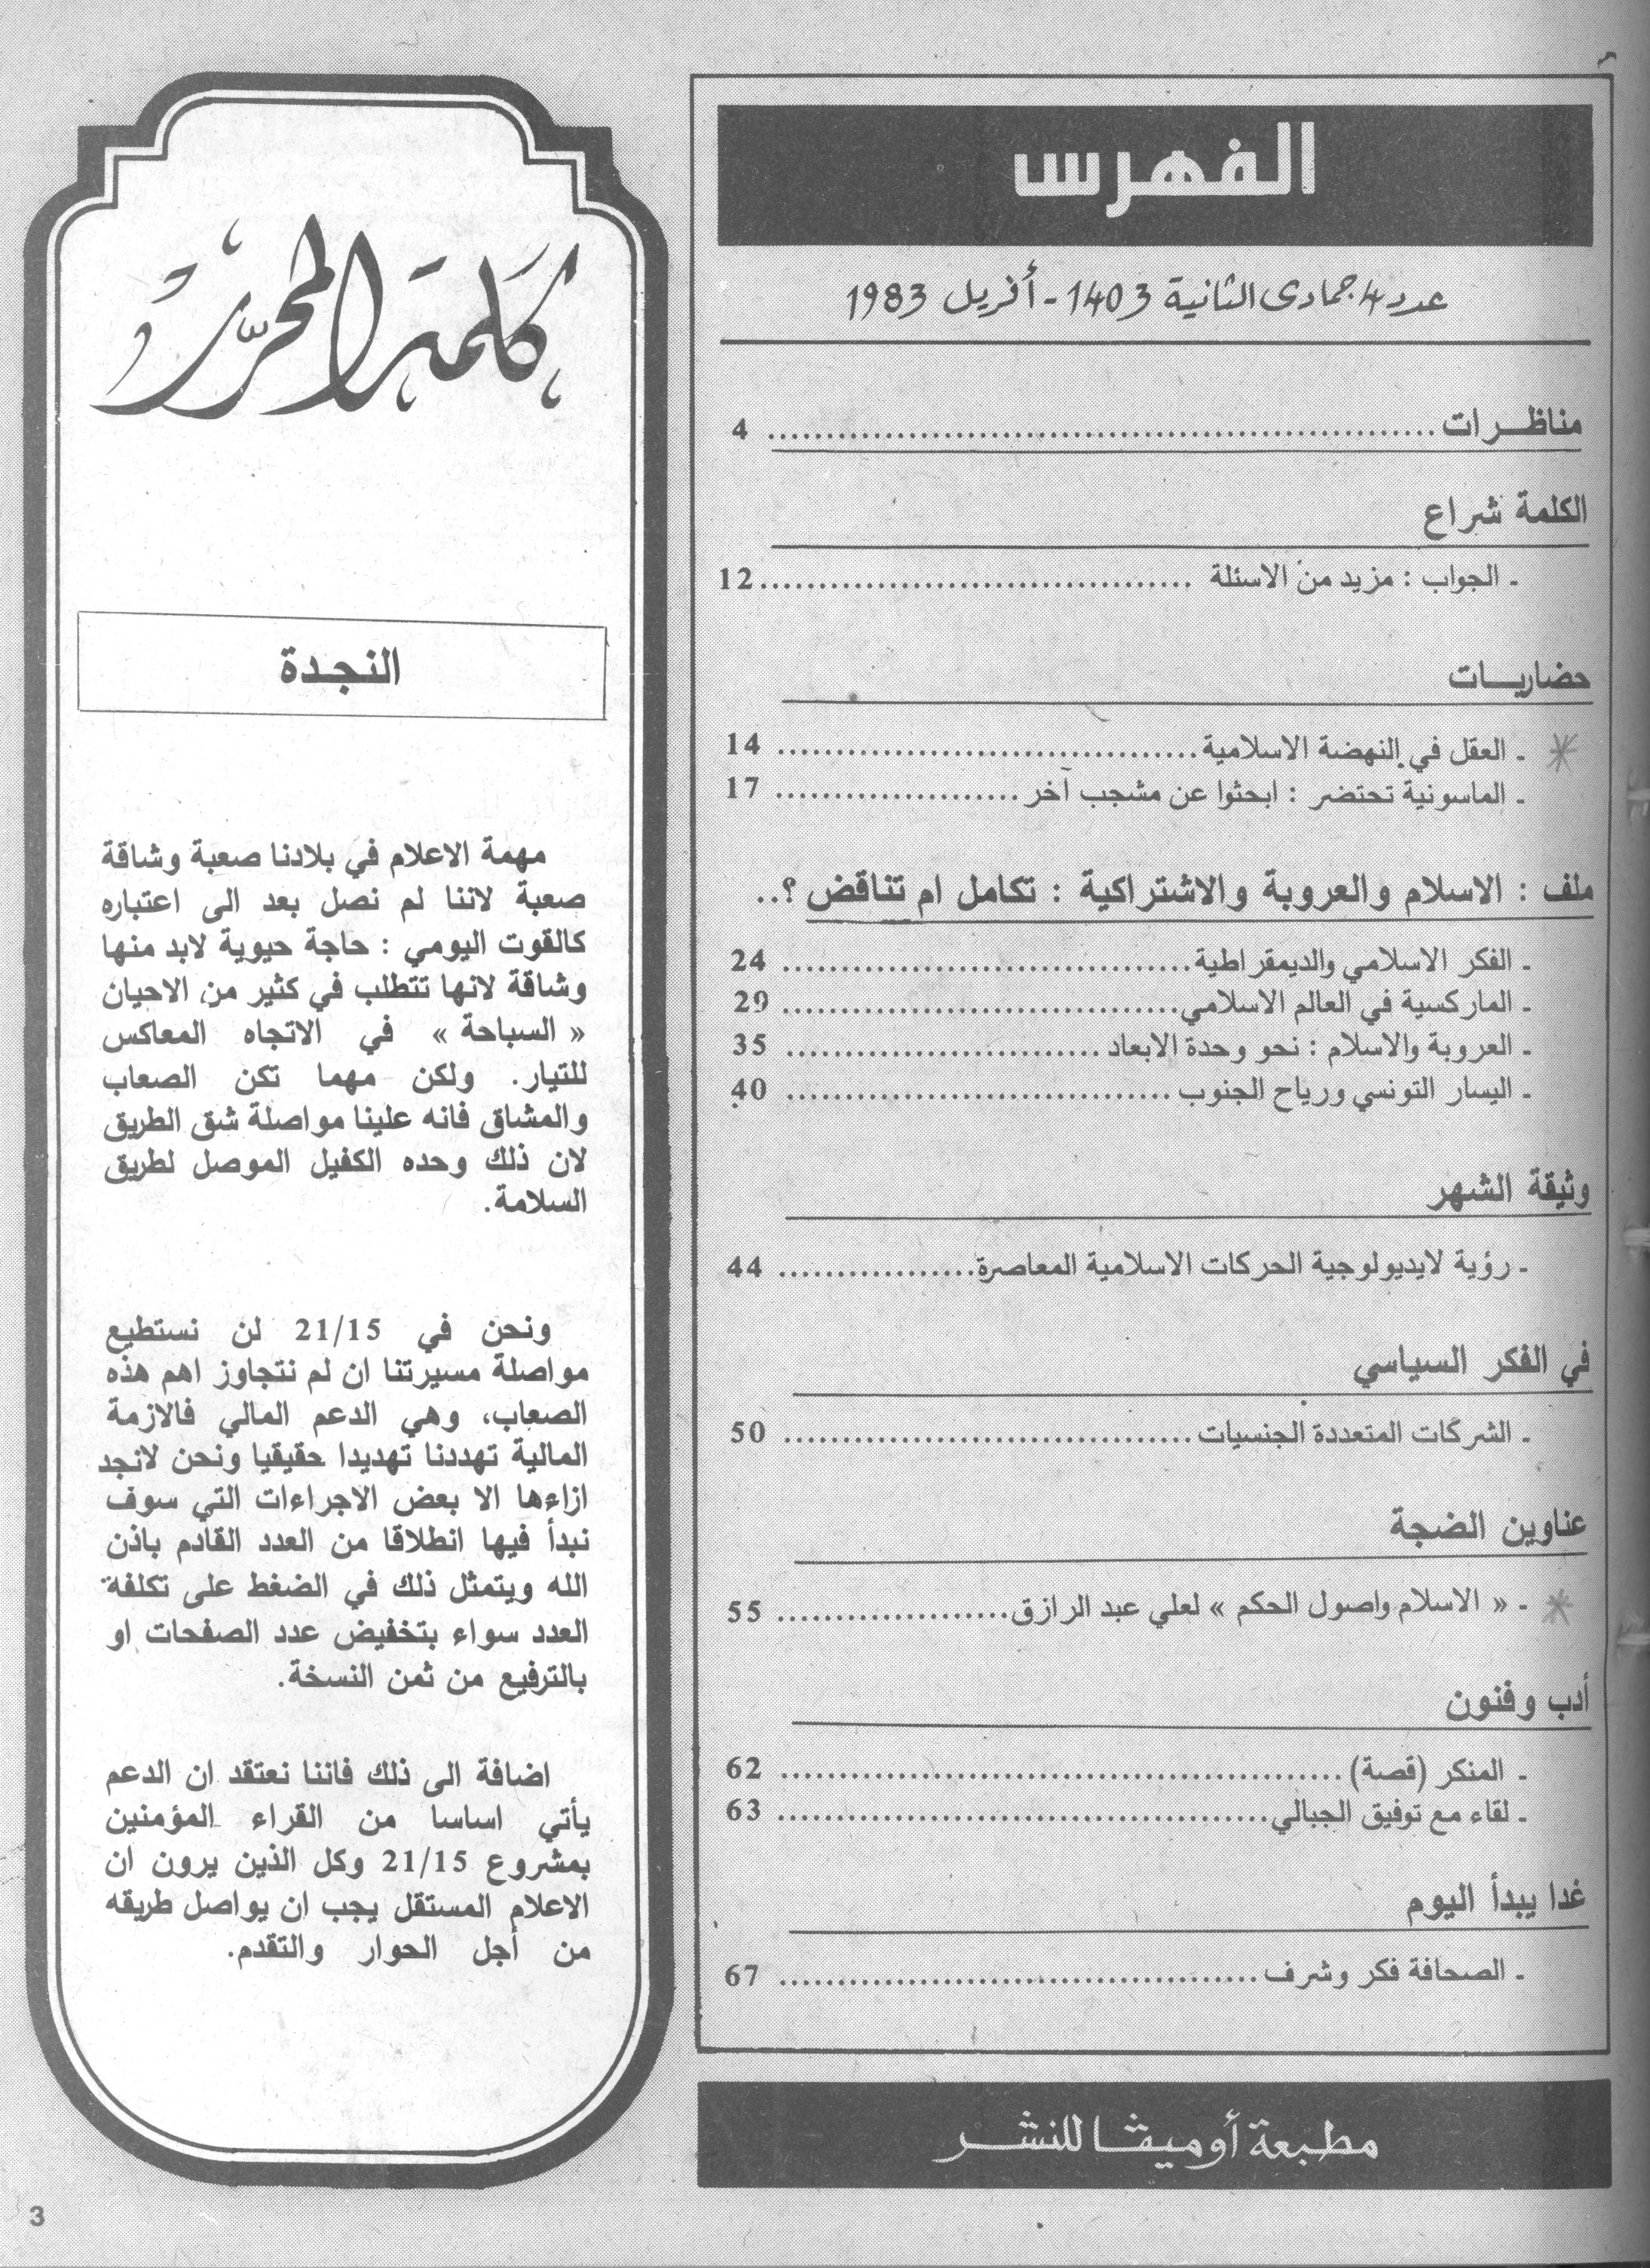 الفهرس
عدد 4 جمادى الثانية 1403 - أفريل 1983
مناظرات ........ 4
الكلمة شراع
- الجواب : مزيد من الاسئلة ........ 12
حضاريات
- العقل في النهضة الاسلامية ........ 14
- الماسونية تحتضر : ابحثوا عن مشجب آخر ........ 17
ملف : الاسلام والعروبة والاشتراكية : تكامل ام تناقض ؟..
- الفكر الاسلامي والديمقراطية ........ 24
- الماركسية في العالم الاسلامي ........ 29
- العروبة والاسلام : نحو وحدة الابعاد ........ 35
- اليسار التونسي ورياح الجنوب ........ 40
وثيقة الشهر
- رؤية لايديولوجية الحركات الاسلامية المعاصرة ........ 44
في الفكر السياسي
- الشركات المتعددة الجنسيات ........ 50
عناوين الضجة
- « الاسلام واصول الحكم » لعلي عبد الرازق ........ 55
أدب وفنون
- المنكر (قصة) ........ 62
- لقاء مع توفيق الجبالي ........ 63
غدا يبدأ اليوم
- الصحافة فكر وشرف ........ 67
مطبعة أوميڤا للنشر
كلمة المحرر
النجدة
مهمة الاعلام في بلادنا صعبة وشاقة
صعبة لاننا لم نصل بعد الى اعتباره
كالقوت اليومي : حاجة حيوية لابد منها
وشاقة لانها تتطلب في كثير من الاحيان
« السباحة » في الاتجاه المعاكس
للتيار. ولكن مهما تكن الصعاب
والمشاق فانه علينا مواصلة شق الطريق
لان ذلك وحده الكفيل الموصل لطريق
السلامة.
ونحن في 21/15 لن نستطيع
مواصلة مسيرتنا ان لم نتجاوز اهم هذه
الصعاب، وهي الدعم المالي فالازمة
المالية تهددنا تهديدا حقيقيا ونحن لانجد
ازاءها الا بعض الاجراءات التي سوف
نبدأ فيها انطلاقا من العدد القادم باذن
الله ويتمثل ذلك في الضغط على تكلفة
العدد سواء بتخفيض عدد الصفحات او
بالترفيع من ثمن النسخة.
اضافة الى ذلك فاننا نعتقد ان الدعم
يأتي اساسا من القراء المؤمنين
بمشروع 21/15 وكل الذين يرون ان
الاعلام المستقل يجب ان يواصل طريقه
من أجل الحوار والتقدم.
3